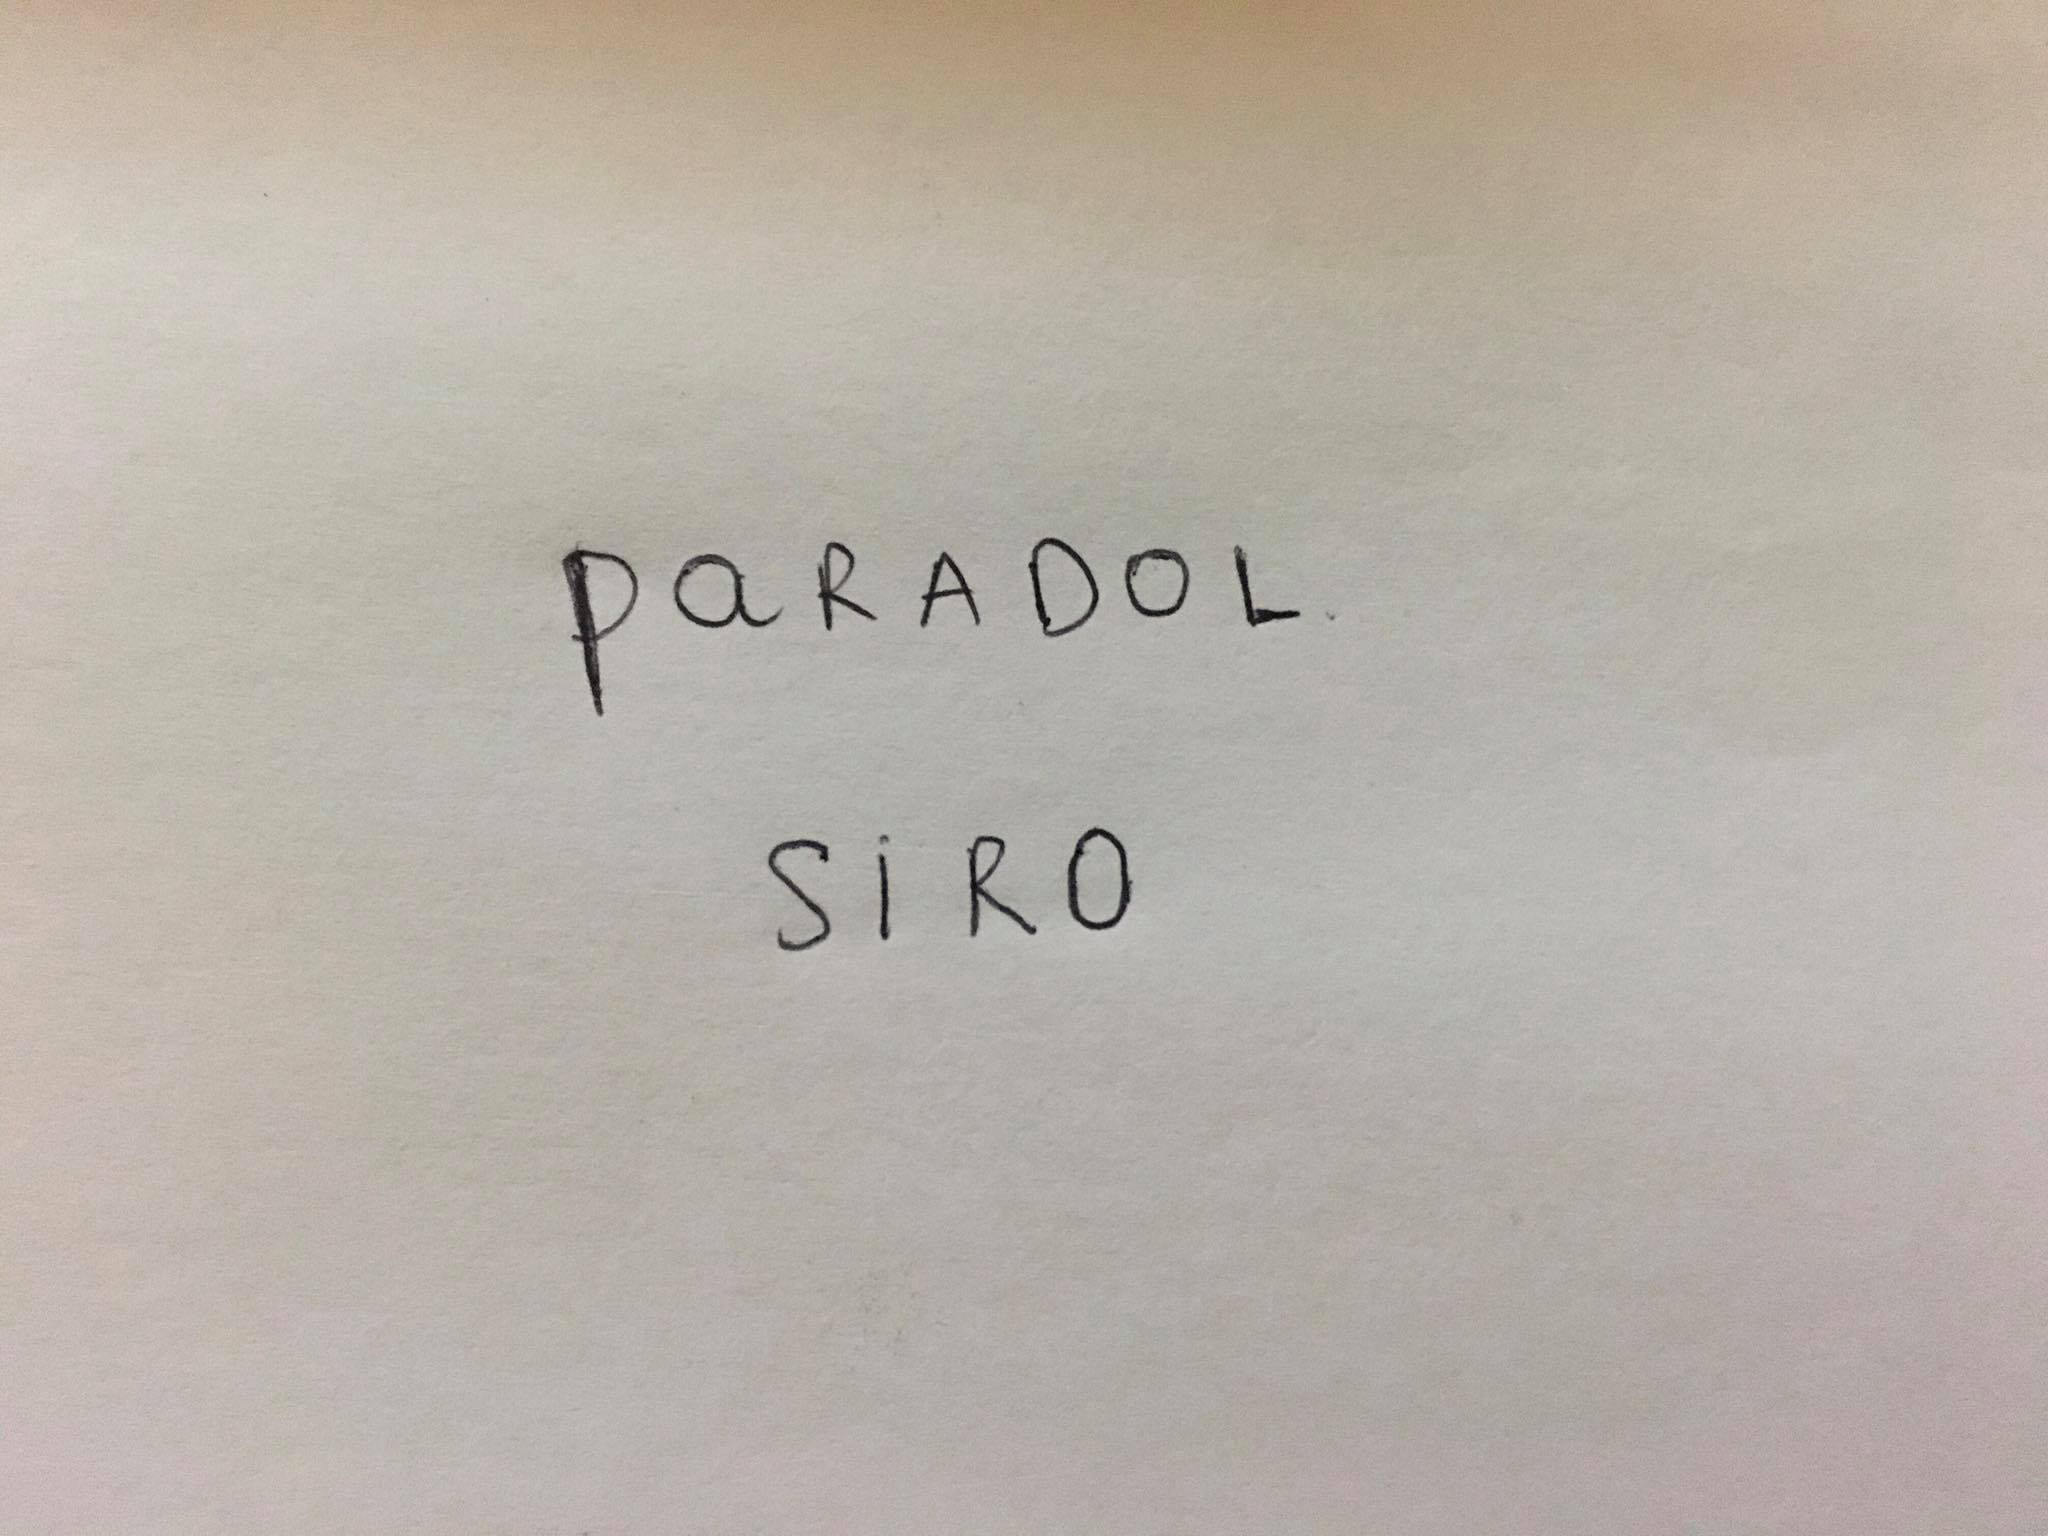 PaRADOL
SiRO